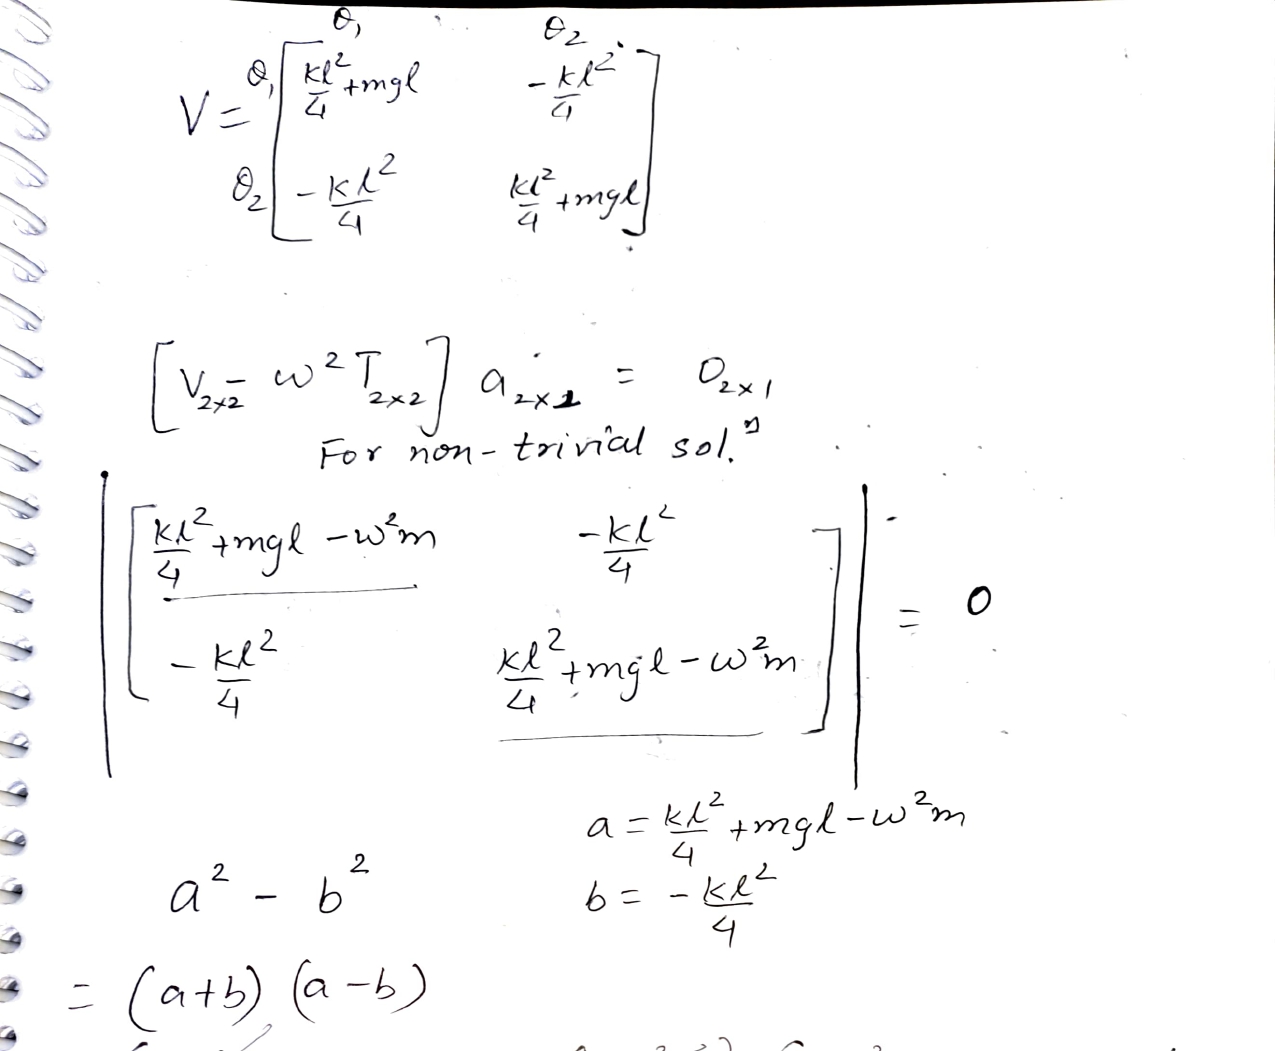 θ₁ θ₂
V = θ₁ [ kl²/4 + mgl   - kl²/4 ]
θ₂ [ - kl²/4   kl²/4 + mgl ]
[ V₂ₓ₂ - ω² T₂ₓ₂ ] a₂ₓ₁ = 0₂ₓ₁
For non-trivial solⁿ.
| [ kl²/4 + mgl - ω²m   - kl²/4 ] | = 0
| [ - kl²/4   kl²/4 + mgl - ω²m ] |
a = kl²/4 + mgl - ω²m
a² - b²   b = - kl²/4
= (a+b) (a-b)